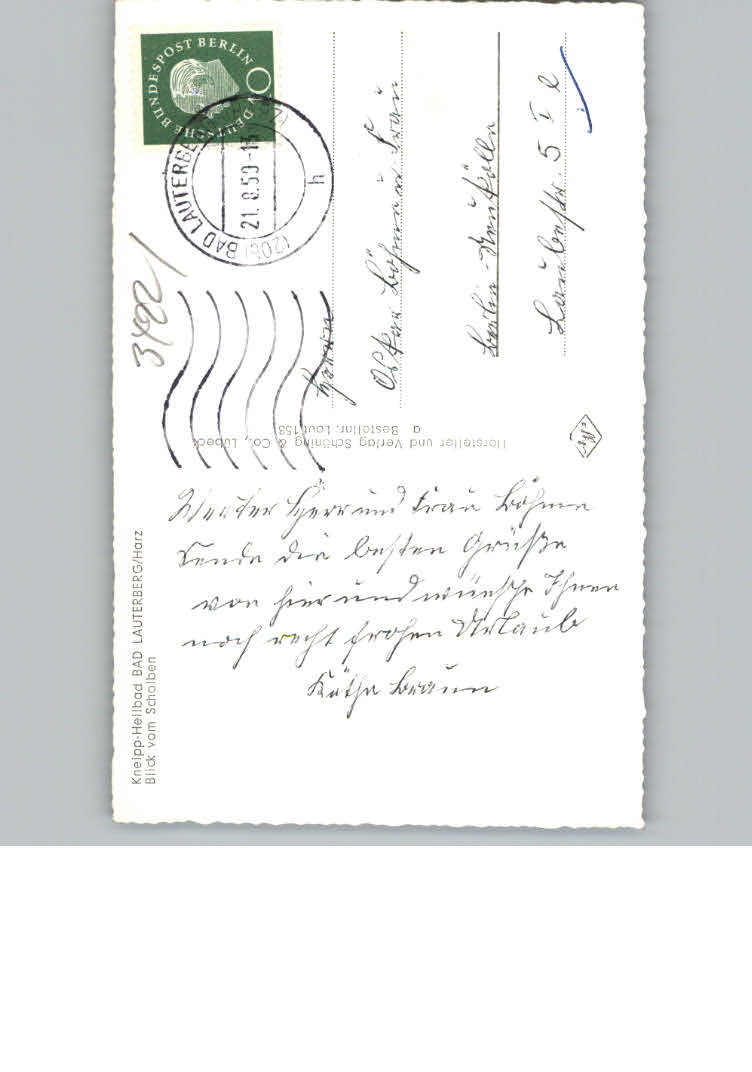 DEUTSCHE BUNDESPOST BERLIN
(20b) BAD LAUTERBERG
21.8.59-13
h
3492/
Herrn
Oskar Böhme u. Frau
Berlin-Neukölln
Laubestr. 5 I l
Hersteller und Verlag Schöning & Co., Lübeck
a Bestellnr. Laut 158
Werter Herr und Frau Böhme
Sende die besten Grüße
von hier und wünsche Ihnen
noch recht frohen Urlaub
Käthe Braun
Kneipp-Heilbad BAD LAUTERBERG/Harz
Blick vom Scholben